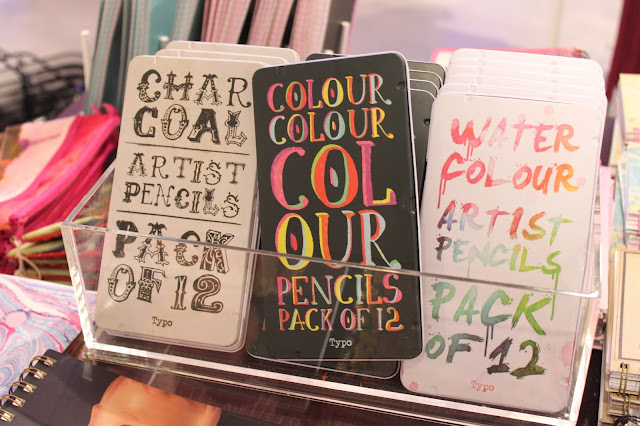 CHAR
COAL
ARTIST
PENCILS
PACK
OF 12
Typo
COLOUR
COLOUR
COL
OUR
PENCILS
PACK OF 12
Typo
WATER
COLOUR
ARTIST
PENCILS
PACK
OF 12
Typo